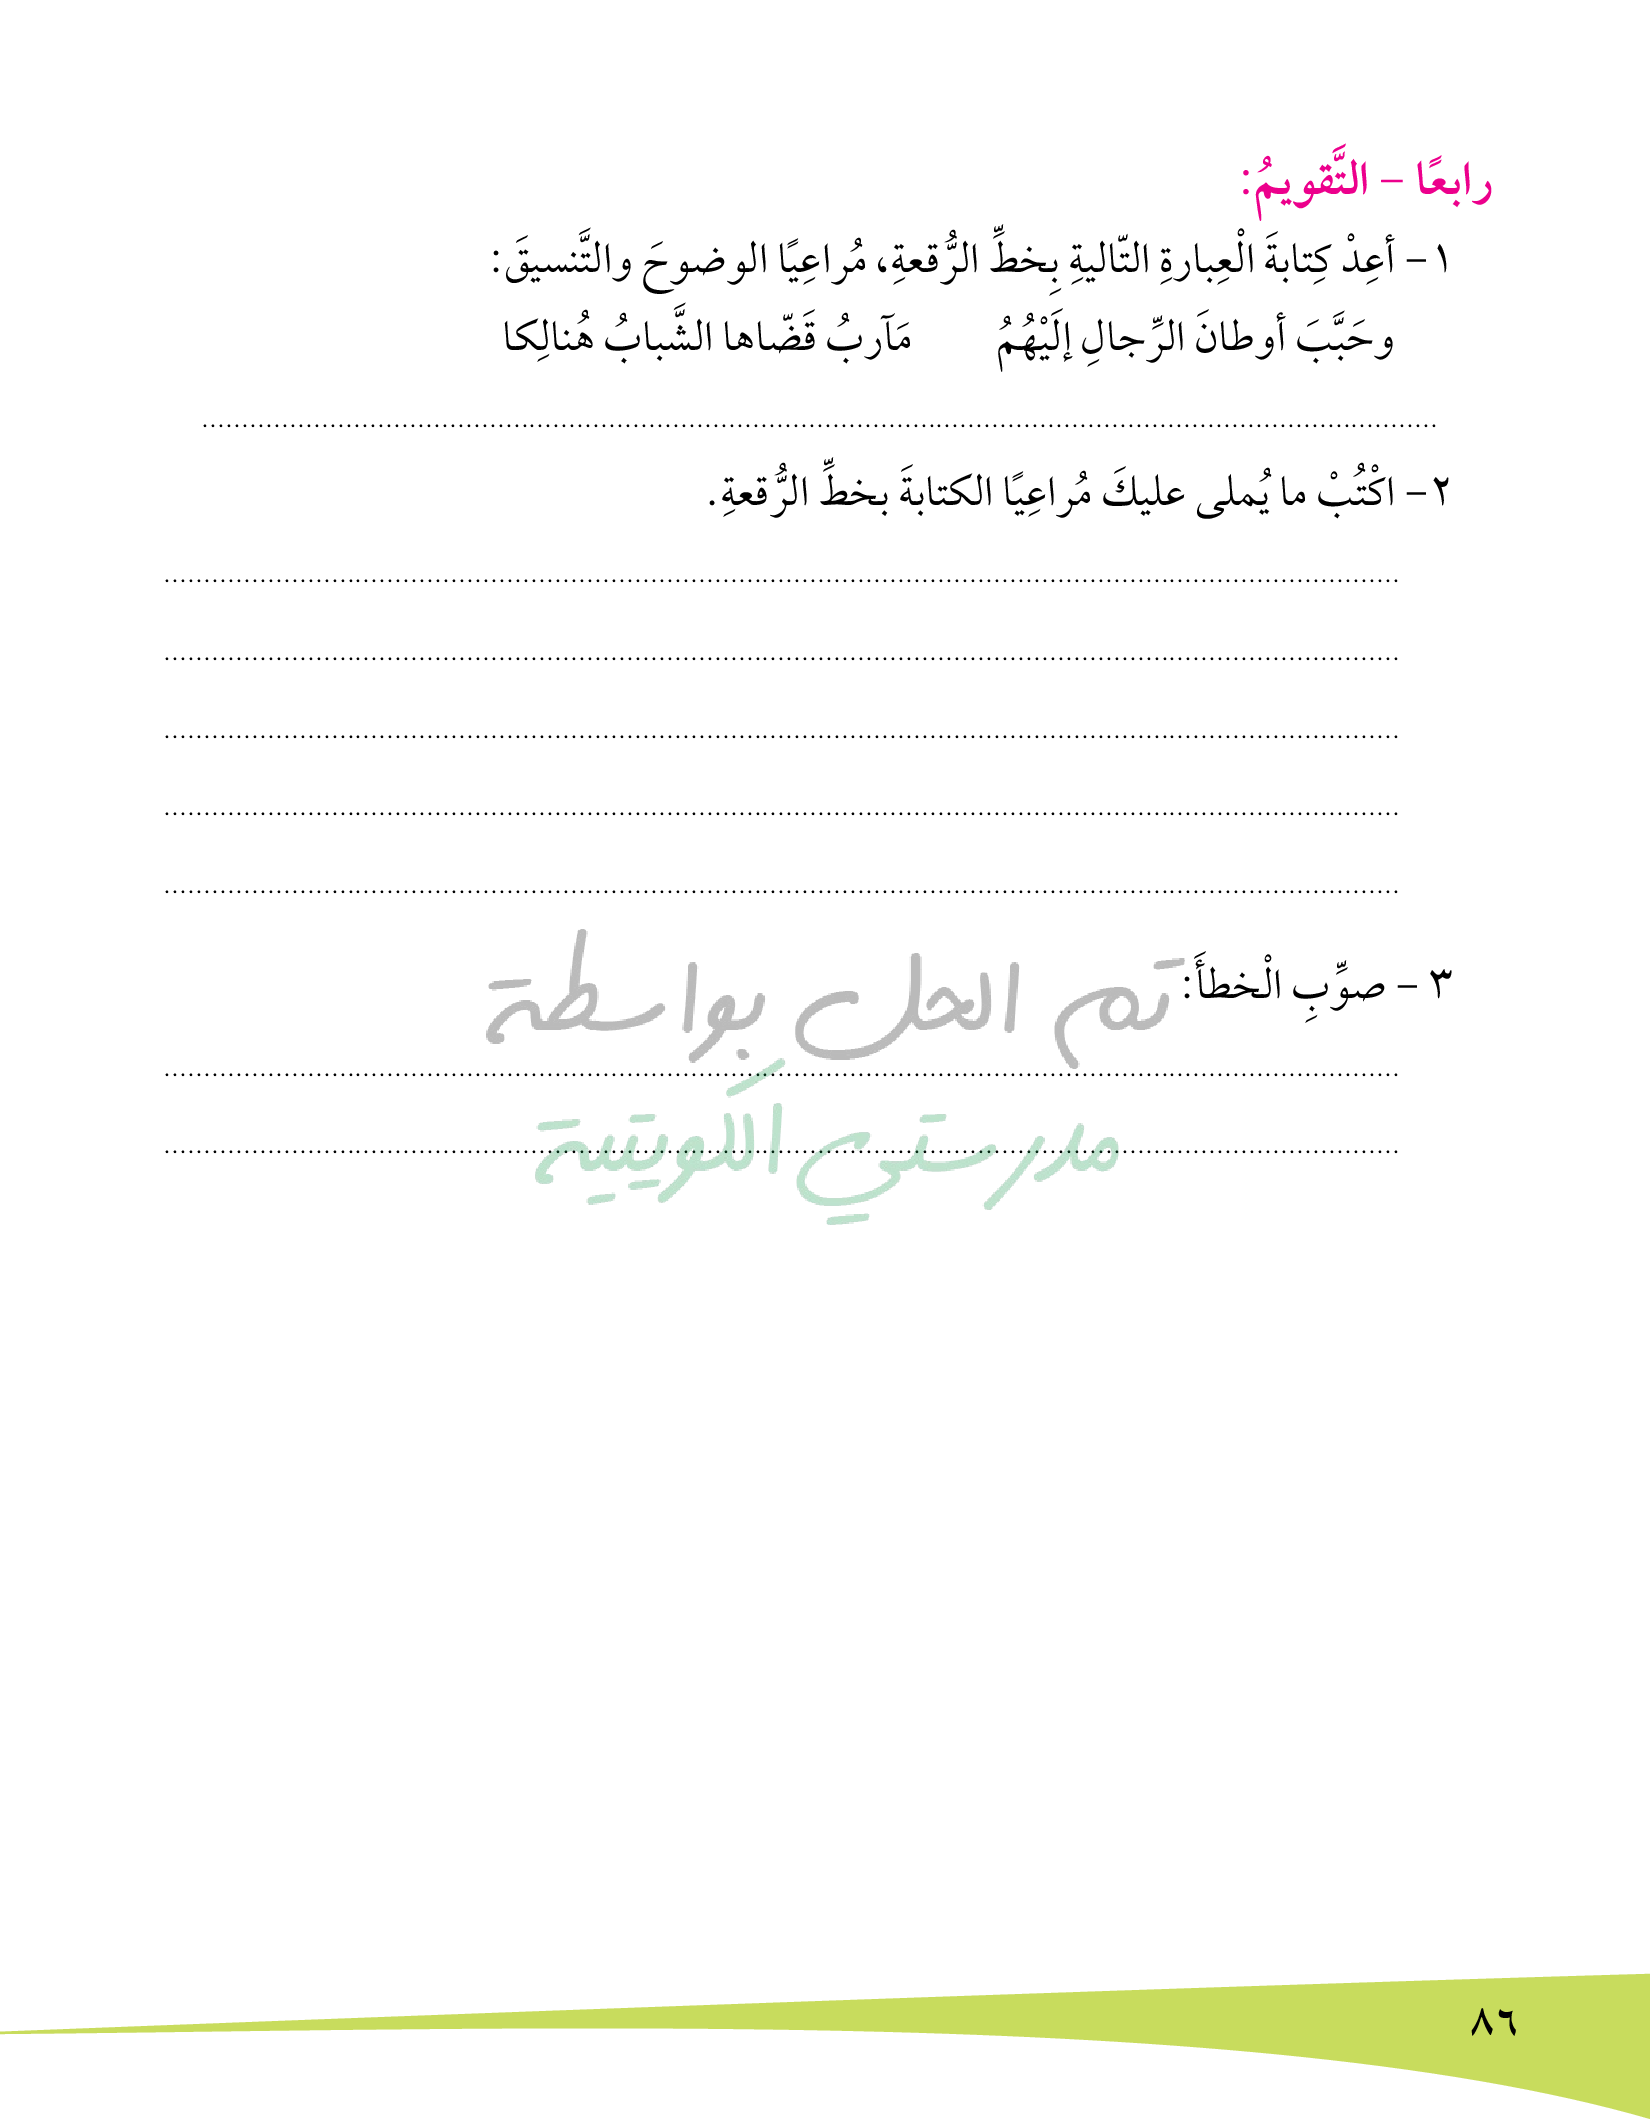 رابعًا – التَّقويمُ:
١– أعِدْ كِتابةَ الْعِبارةِ التّاليةِ بِخطِّ الرُّقعةِ، مُراعِيًا الوضوحَ والتَّنسيقَ:
وحَبَّبَ أوطانَ الرِّجالِ إلَيْهُمُ مَآربُ قَضّاها الشَّبابُ هُنالِكا
٢– اكْتُبْ ما يُملى عليكَ مُراعِيًا الكتابةَ بخطِّ الرُّقعةِ.
٣ – صوِّبِ الْخطأَ:
تم الحل بواسطة
مدرستي الكويتية
٨٦